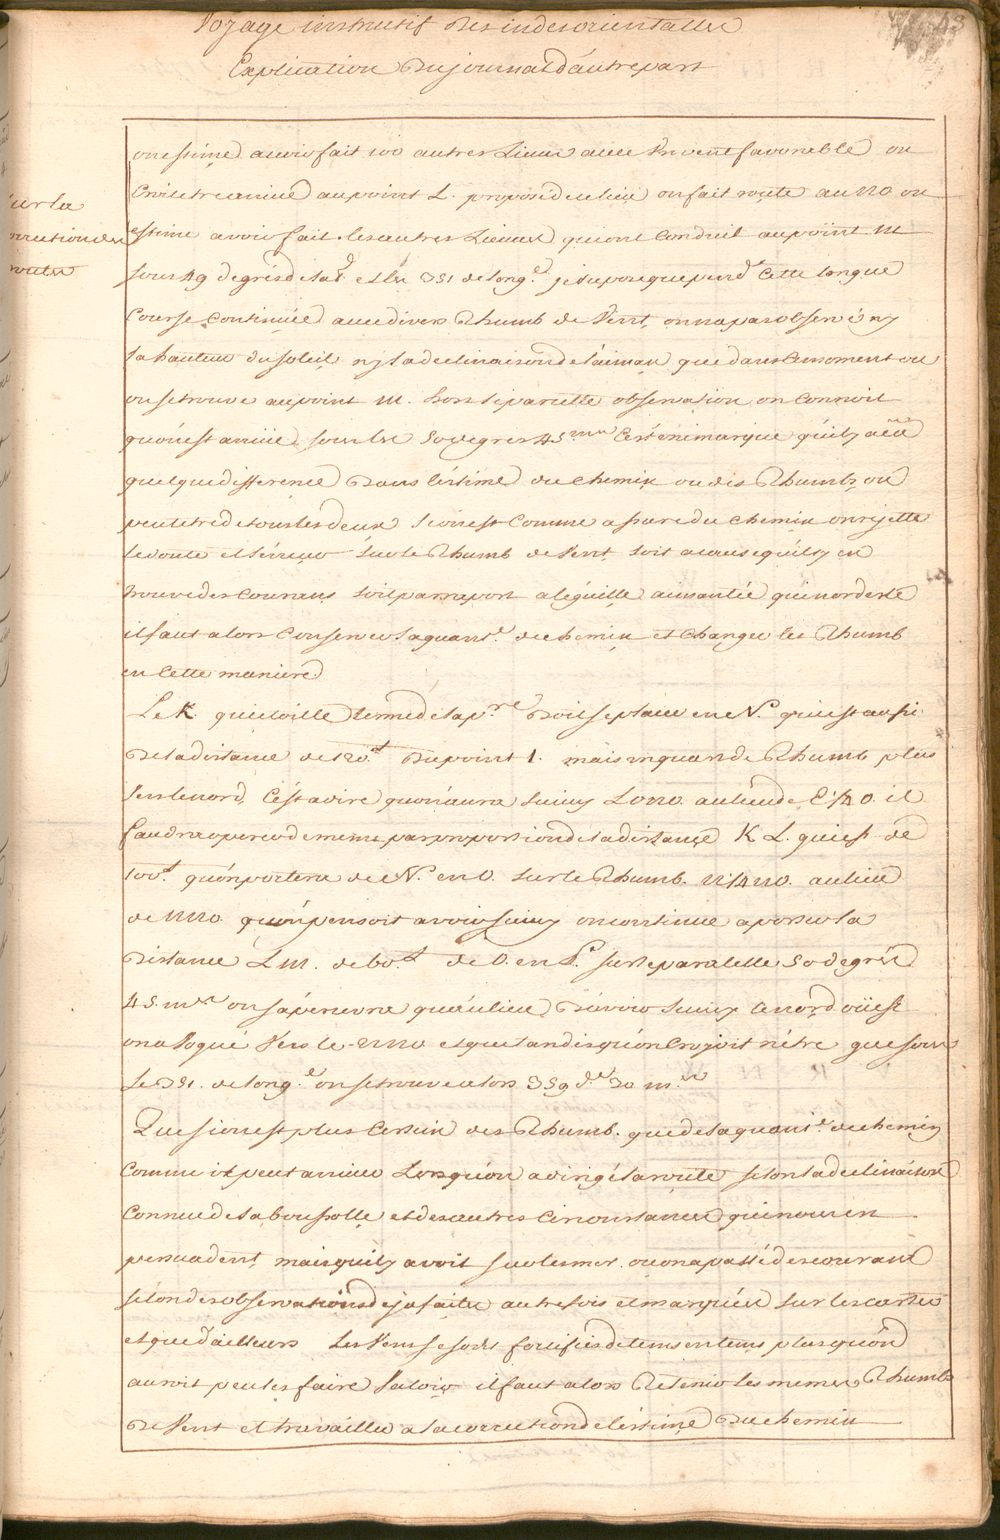 Voyage instructif des indes orientalles
Explication du journal d'autre part
on estime avoir fait 100 autres Lieux avec un vent favorable on
croit etre arrivé au point L. proposé du lieu on fait route au NO ou
estime avoir fait les autres Lieux qui ont conduit au point M
sur la
correction des
routes
sous 49 degrés de lat. et les 351 de long.e je supose que pend.t cette longue
Course Continuée avec divers Rhumb de Vent, on n'a pas observé ny
la hauteur du soleil ny la declinaison de l'aiman que dans le moment ou
on se trouve au point M. hors si par cette observation on connoit
qu'on est arrivé sous les 50 degres 45 mn C'est une marque qu'il y a eu
quelque difference dans l'estime du chemin ou des Rhumbs, ou
peut etre de tous les deux si on est comme assuré du chemin on rejette
le doute et l'erreur sur le Rhumb de Vent soit a cause qu'il s'y en
trouve des Courans soit par raport a l'éguille aimantée qui nordeste
il faut alors Conserver la quant.é du chemin et changer les Rhumb
en Cette maniere
Le K. qui est le terme de la p.re doit se placer en N. qui est aussi
de la distance de 120.t du point I. mais un quart de Rhumb plus
vers le nord, C'est a dire qu'on aura suivy L'ONO. au lieu de l'O¼NO. il
faudra operer de meme par proportion de la distance K L. qui est de
100.t qu'on portera de N. en O. sur le Rhumb. N¼NO. au lieu
de NNO. qu'on pensoit avoir suivy on continue a poser la
Distance L M. de 60.t de O. en P. sur le paralelle 50 degrés
45. mn on s'apercevra qu'au lieu d'avoir suivy le nord oüest
on a vogué vers le NNO et que tandis qu'on croyoit n'être que sous
Le 351. de long.e on se trouve alors 359 d.és 20 m.n
Que si on est plus Certain des Rhumb. que de la quant.é du chemin
Comme il peut arriver Lorsqu'on a dirigé la route selon la declinaison
Connue de la boussolle et des autres circonstances qui nous en
persuadent, mais qu'il y avoit sur les mer. ou on a passé des courans
selon des observations deja faites autrefois et marquées sur les cartes
et que d'ailleurs Les Vens se sont fortifiés de tems en tems plus qu'on
auroit peu les faire Valoir il faut alors Retenir les memes Rhumb
de Vent et travailler a la correction de l'estime du chemin